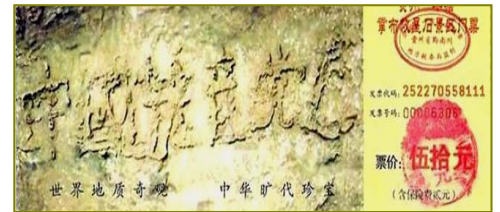 中国共产党
世界地质奇观 中华旷代珍宝
掌布救星石景区门票
贵州省黔南州
发票代码: 252270558111
发票号码: 00006306
票价: 伍拾元
(含保险费贰元)